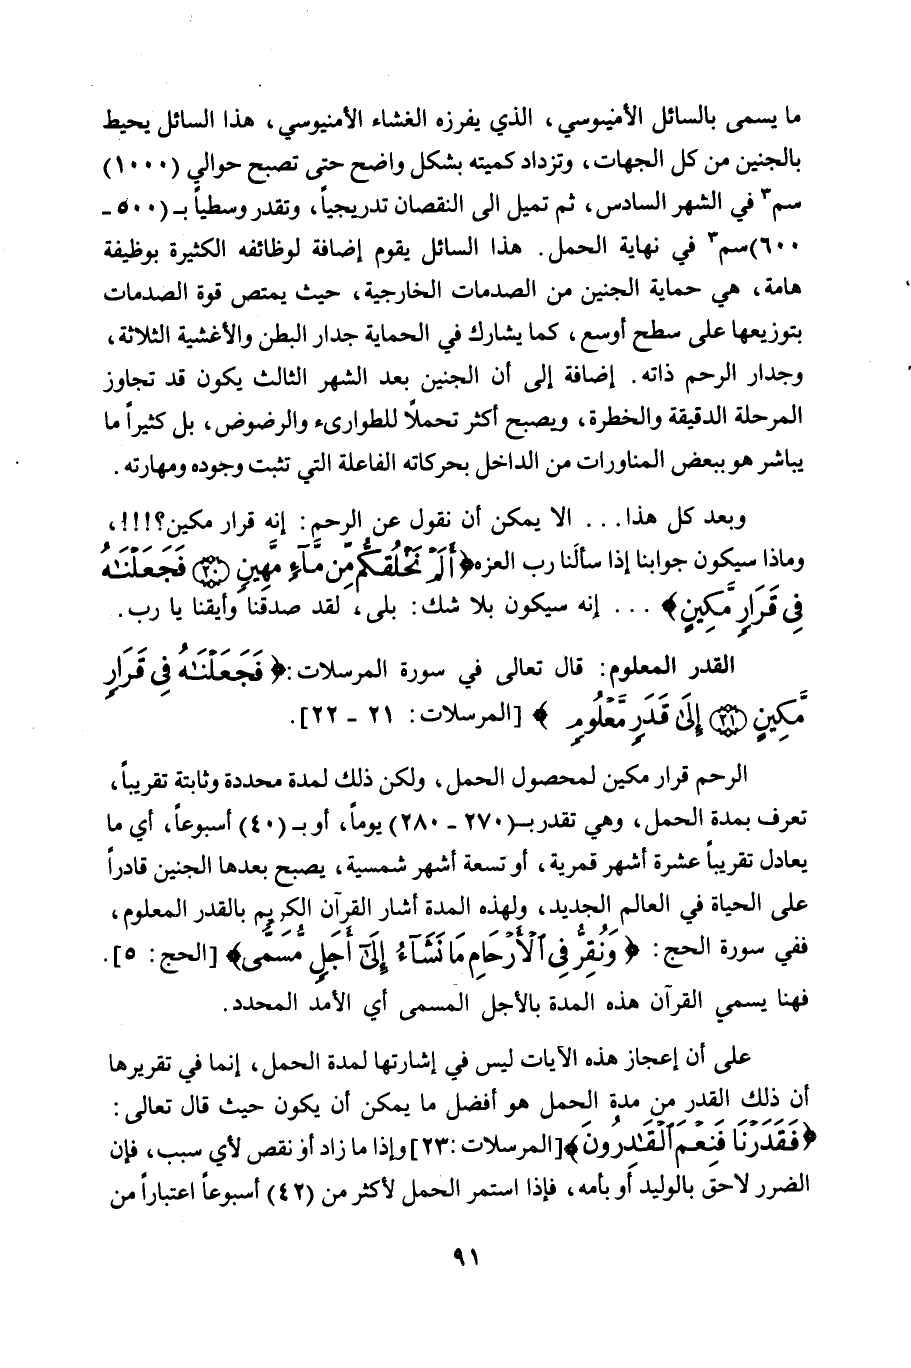 ما يسمى بالسائل الأمنيوسي، الذي يفرزه الغشاء الأمنيوسي، هذا السائل يحيط
بالجنين من كل الجهات، وتزداد كميته بشكل واضح حتى تصبح حوالي (١٠٠٠)
سم٣ في الشهر السادس، ثم تميل الى النقصان تدريجياً، وتقدر وسطياً بـ(٥٠٠ ـ
٦٠٠)سم٣ في نهاية الحمل. هذا السائل يقوم إضافة لوظائفه الكثيرة بوظيفة
هامة، هي حماية الجنين من الصدمات الخارجية، حيث يمتص قوة الصدمات
بتوزيعها على سطح أوسع، كما يشارك في الحماية جدار البطن والأغشية الثلاثة،
وجدار الرحم ذاته. إضافة إلى أن الجنين بعد الشهر الثالث يكون قد تجاوز
المرحلة الدقيقة والخطرة، ويصبح أكثر تحملاً للطوارىء والرضوض، بل كثيراً ما
يباشر هو ببعض المناورات من الداخل بحركاته الفاعلة التي تثبت وجوده ومهارته.
وبعد كل هذا... الا يمكن أن نقول عن الرحم: إنه قرار مكين؟!!!،
وماذا سيكون جوابنا إذا سألَنا رب العزه﴿أَلَمْ نَخْلُقكُّم مِّن مَّآءٍ مَّهِينٍ ﴿٢٠﴾ فَجَعَلْنَٰهُ
فِى قَرَارٍ مَّكِينٍ﴾ ... إنه سيكون بلا شك: بلى، لقد صدقنا وأيقنا يا رب.
القدر المعلوم: قال تعالى في سورة المرسلات:﴿فَجَعَلْنَٰهُ فِى قَرَارٍ
مَّكِينٍ ﴿٢١﴾ إِلَىٰ قَدَرٍ مَّعْلُومٍ ﴾ [المرسلات: ٢١ ـ ٢٢].
الرحم قرار مكين لمحصول الحمل، ولكن ذلك لمدة محددة وثابتة تقريباً،
تعرف بمدة الحمل، وهي تقدر بـ(٢٧٠ ـ ٢٨٠) يوماً، أو بـ (٤٠) أسبوعاً، أي ما
يعادل تقريباً عشرة أشهر قمرية، أو تسعة أشهر شمسية، يصبح بعدها الجنين قادراً
على الحياة في العالم الجديد، ولهذه المدة أشار القرآن الكريم بالقدر المعلوم،
ففي سورة الحج: ﴿وَنُقِرُّ فِى ٱلْأَرْحَامِ مَا نَشَآءُ إِلَىٰٓ أَجَلٍ مُّسَمًّى﴾ [الحج: ٥].
فهنا يسمي القرآن هذه المدة بالأجل المسمى أي الأمد المحدد.
على أن إعجاز هذه الآيات ليس في إشارتها لمدة الحمل، إنما في تقريرها
أن ذلك القدر من مدة الحمل هو أفضل ما يمكن أن يكون حيث قال تعالى:
﴿فَقَدَرْنَا فَنِعْمَ ٱلْقَٰدِرُونَ﴾[المرسلات:٢٣] وإذا ما زاد أو نقص لأي سبب، فإن
الضرر لاحق بالوليد أو بأمه، فإذا استمر الحمل لأكثر من (٤٢) أسبوعاً اعتباراً من
٩١